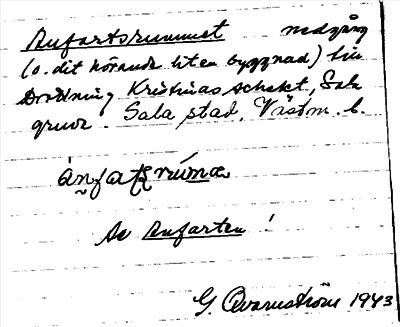 Anfartsrummet nedgång
(o. dit hörande liten byggnad) till
Drottning Kristinas schakt, Sala
gruva. Sala stad, Västm. l.
ánfaʈʂrúmə
Av Anfarten!
G. Qvarnström 1943